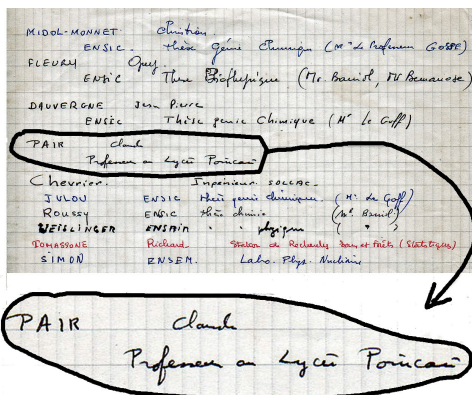 MIDOL-MONNET Christian
ENSIC. thèse génie Chimique (Mr Le Professeur GOSSE)
FLEURY Guy.
ENSIC These Biophysique (Mr. Baniol, Mr Bemanose)
DAUVERGNE Jean Pierre
ENSIC Thèse genie Chimique (Mr Le Goff)
PAIR Claude
Professeur au Lycée Poincaré
Chevrier. Ingénieur SOLLAC.
JULOU ENSIC thèse genie chimique. (Mr Le Goff)
Roussy ENSIC thèse chimie. (Mr Baniol)
WEISLINGER ENSAIN " " physique ( " )
TOMASSONE Richard. Station de Recherches Eaux et Forêts (Statistiques)
SIMON ENSEM. Labo. Phys. Nucléaire
PAIR Claude
Professeur au Lycée Poincaré